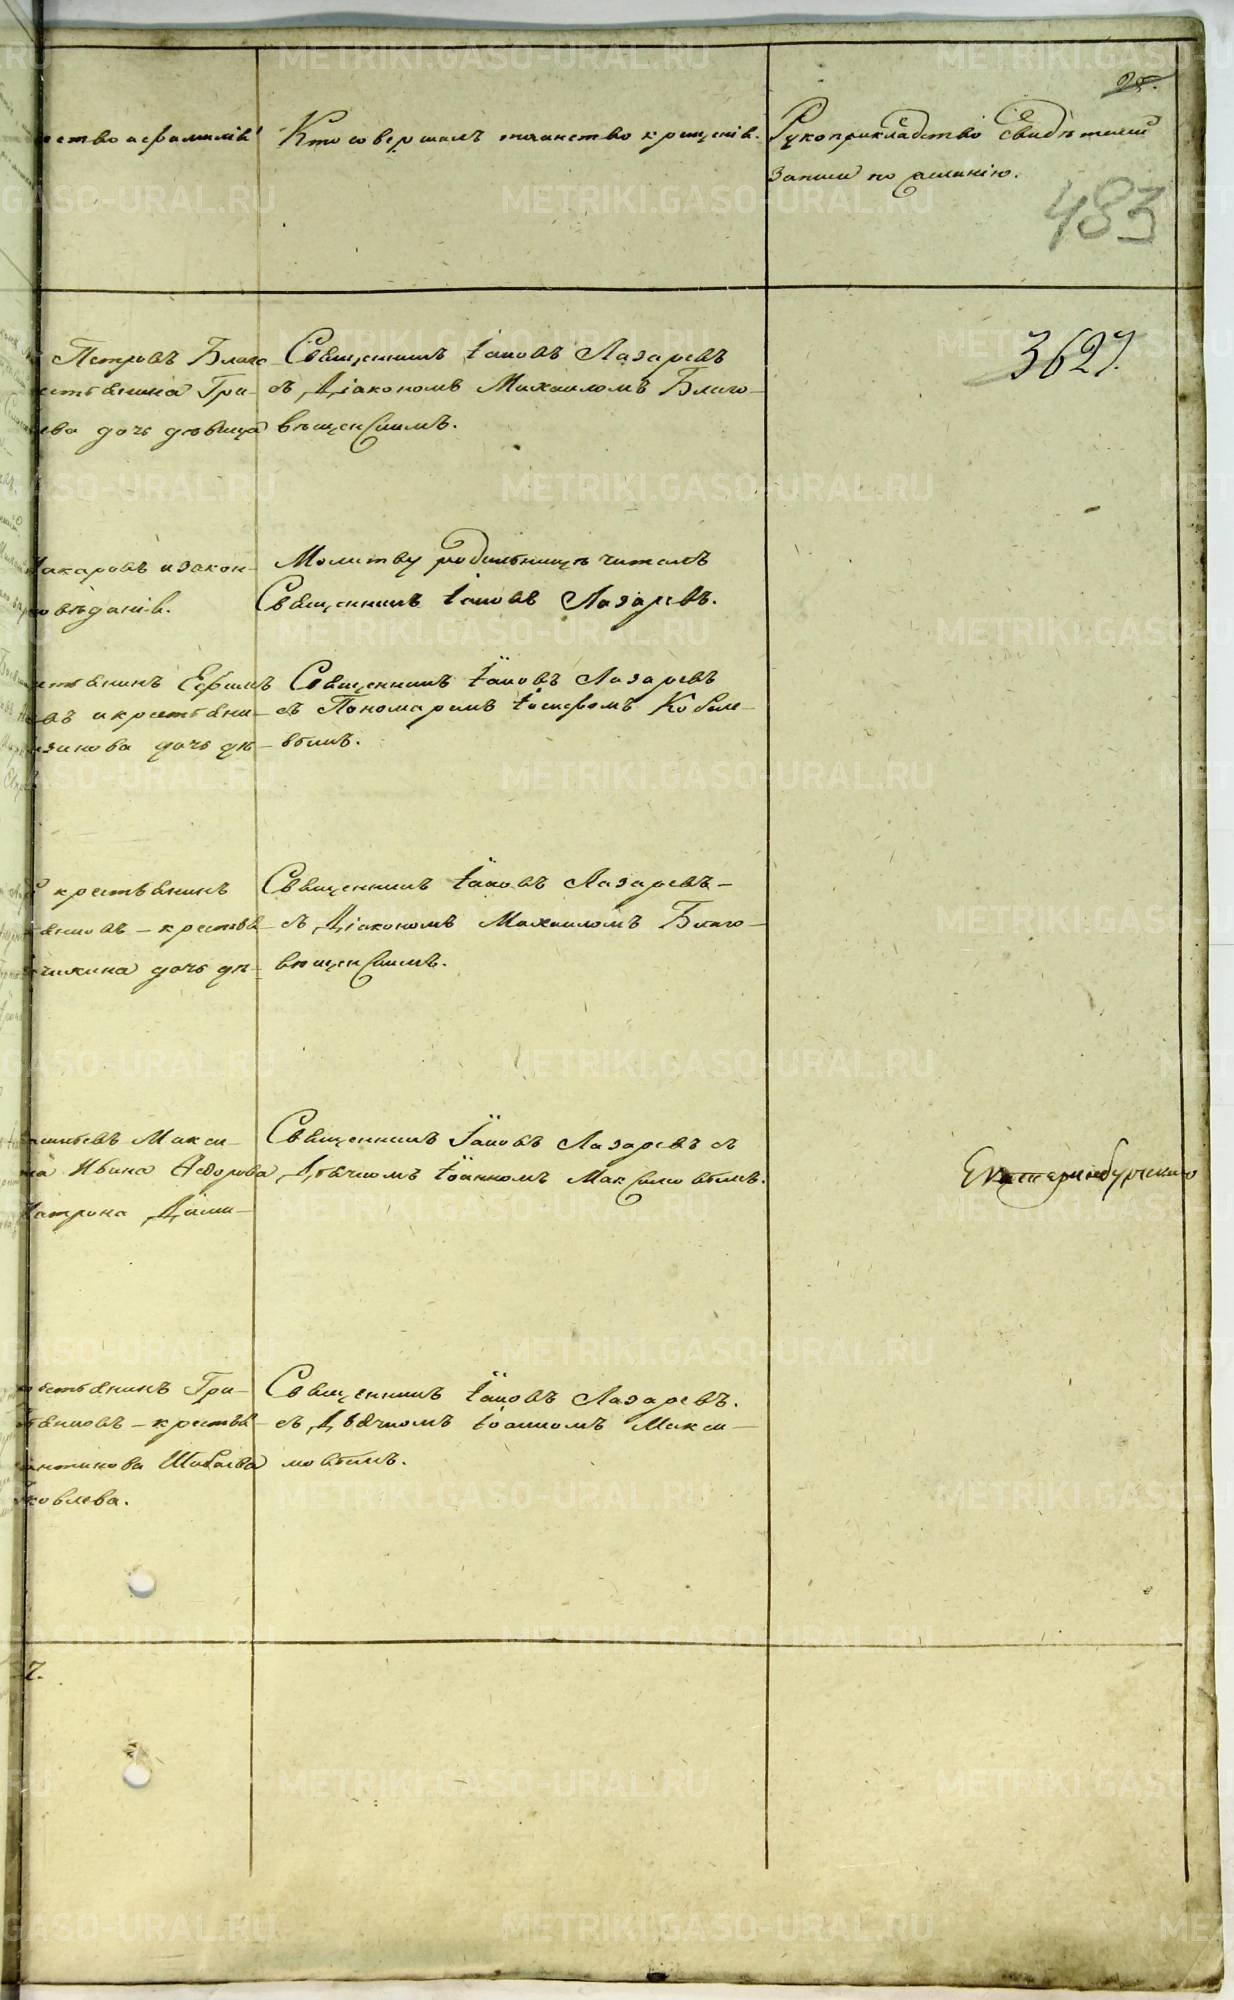 25.
ество и фамилія
Кто совершалъ таинство крещенія.
Рукоприкладство свидѣтелей
записи по желанію.
483
3627.
Петровъ Благо
Священникъ Іаковъ Лазаревъ
естьянина Гри-
съ Діакономъ Михаиломъ Благо-
ева дочь дѣвица
вѣщенскимъ.
Макаровъ и закон-
Молитву родильницѣ читалъ
овѣданія.
Священникъ Іаковъ Лазаревъ.
стьянинъ Ефимъ
Священникъ Іаковъ Лазаревъ
въ и крестьяни-
съ Пономаремъ Іосифомъ Кобеле-
зинова дочь дѣ-
вымъ.
крестьянинъ
Священникъ Іаковъ Лазаревъ-
ьяновъ - крестья-
съ Діакономъ Михаиломъ Благо-
чихина дочь дѣ-
вѣщенскимъ.
Макси-
Священникъ Іаковъ Лазаревъ съ
на Ивана Ѳедорова
Дьячкомъ Іоанномъ Максимовымъ.
Екатеринбургскаго
Матрона Дими-
рестьянинъ Гри-
Священникъ Іаковъ Лазаревъ.
ьяновъ - крестья-
съ Дьячкомъ Іоанномъ Макси-
антинова Шибаева
мовымъ.
Яковлева.
7.
METRIKI.GASO-URAL.RU